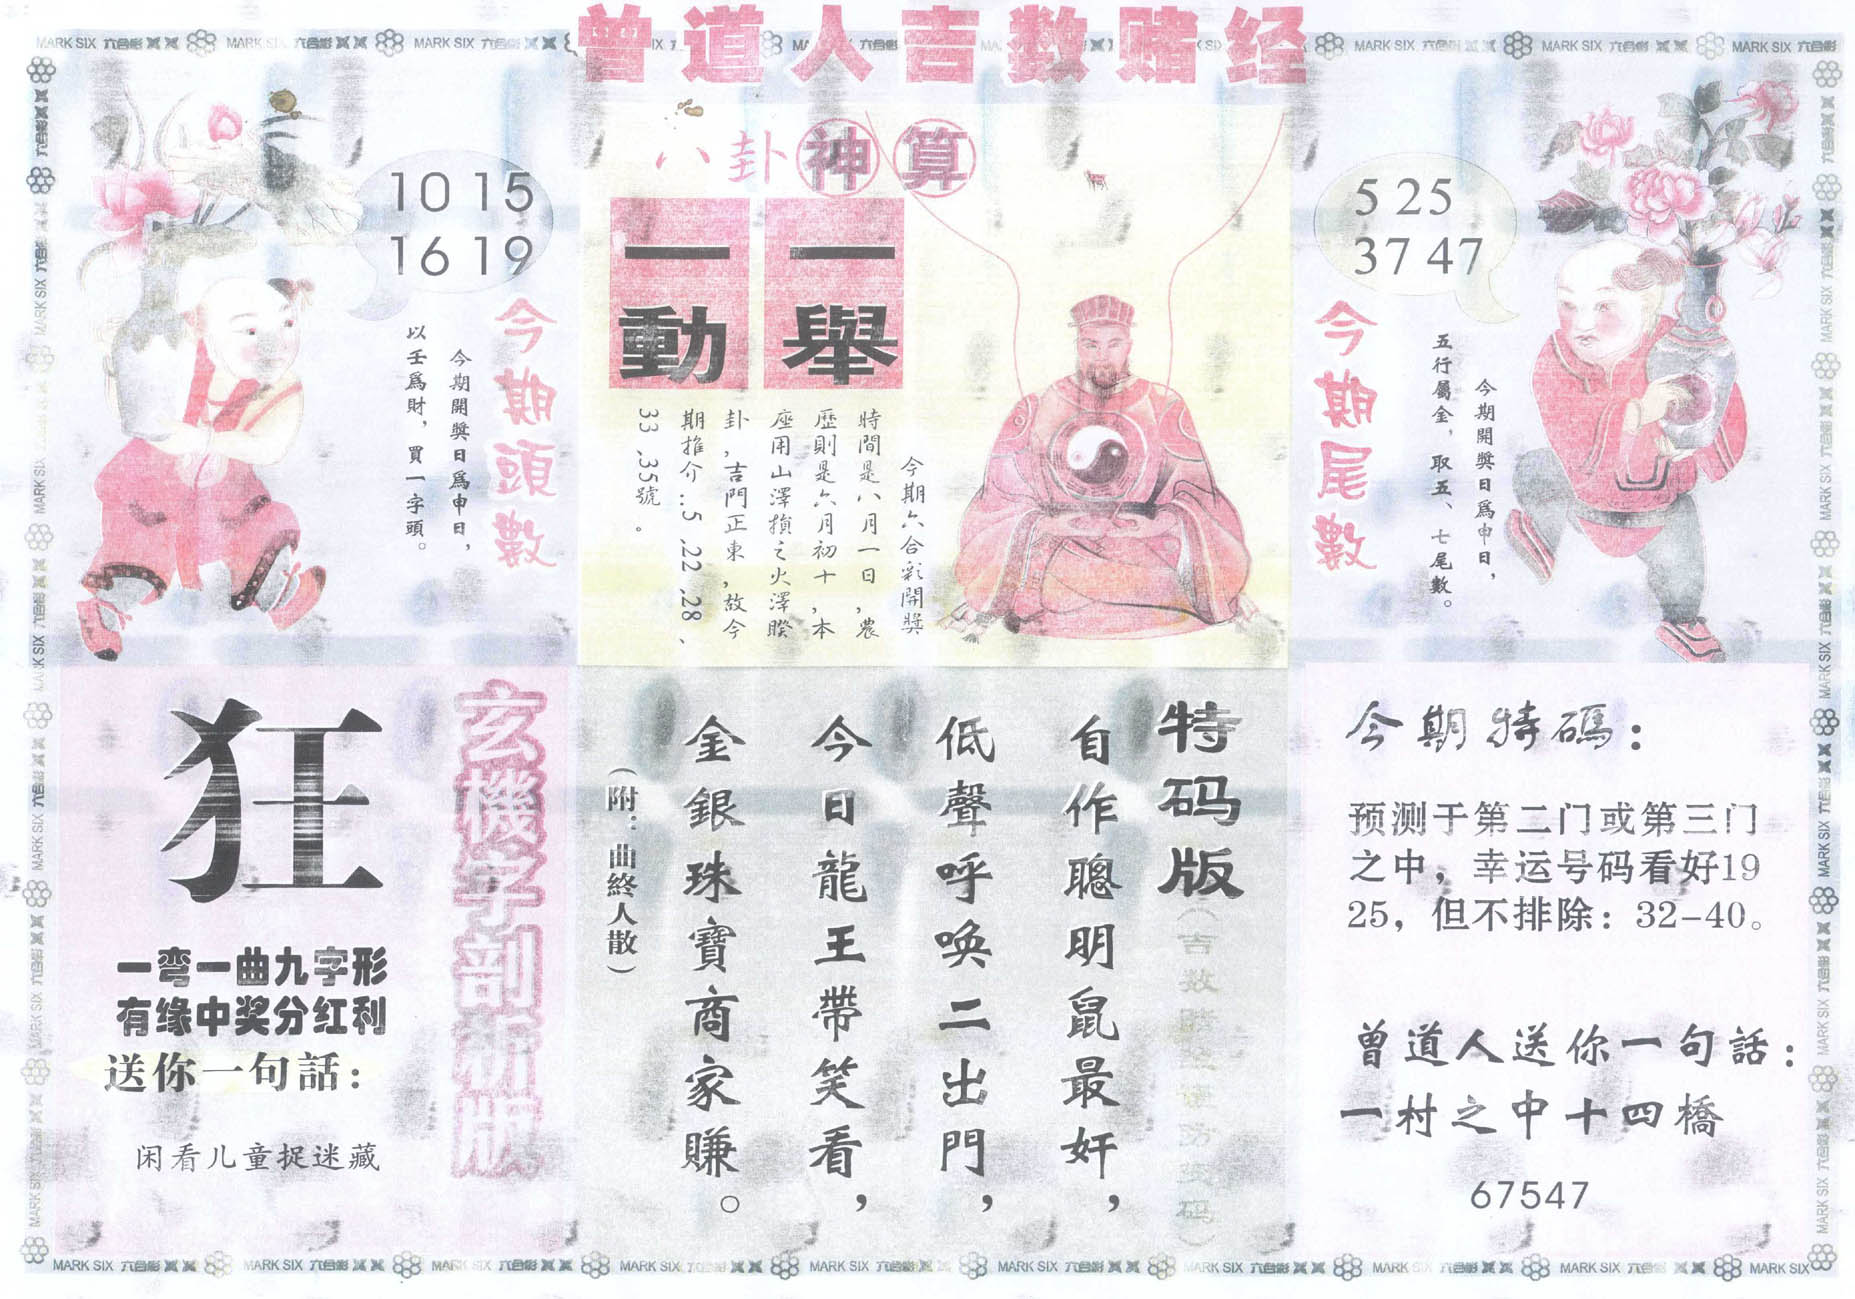 曾道人吉数赌经
MARK SIX 六合彩
10 15
16 19
今期頭數
今期開獎日爲申日，
以壬爲財，買一字頭。
八卦神算
一舉
一動
今期六合彩開獎
時間是八月一日，農
歷則是六月初十，本
座用山澤損之火澤睽
卦，吉門正東，故今
期推介…5、22、28、
33、35號。
5 25
37 47
今期尾數
今期開獎日爲申日，
五行屬金，取五、七尾數。
玄機字剖析版
狂
一弯一曲九字形
有缘中奖分红利
送你一句話：
闲看儿童捉迷藏
特码版
（吉数赌经
码）
自作聰明鼠最奸，
低聲呼喚二出門，
今日龍王帶笑看，
金銀珠寶商家賺。
（附：曲終人散）
今期特碼：
预测于第二门或第三门
之中，幸运号码看好19
25，但不排除：32-40。
曾道人送你一句話：
一村之中十四橋
67547